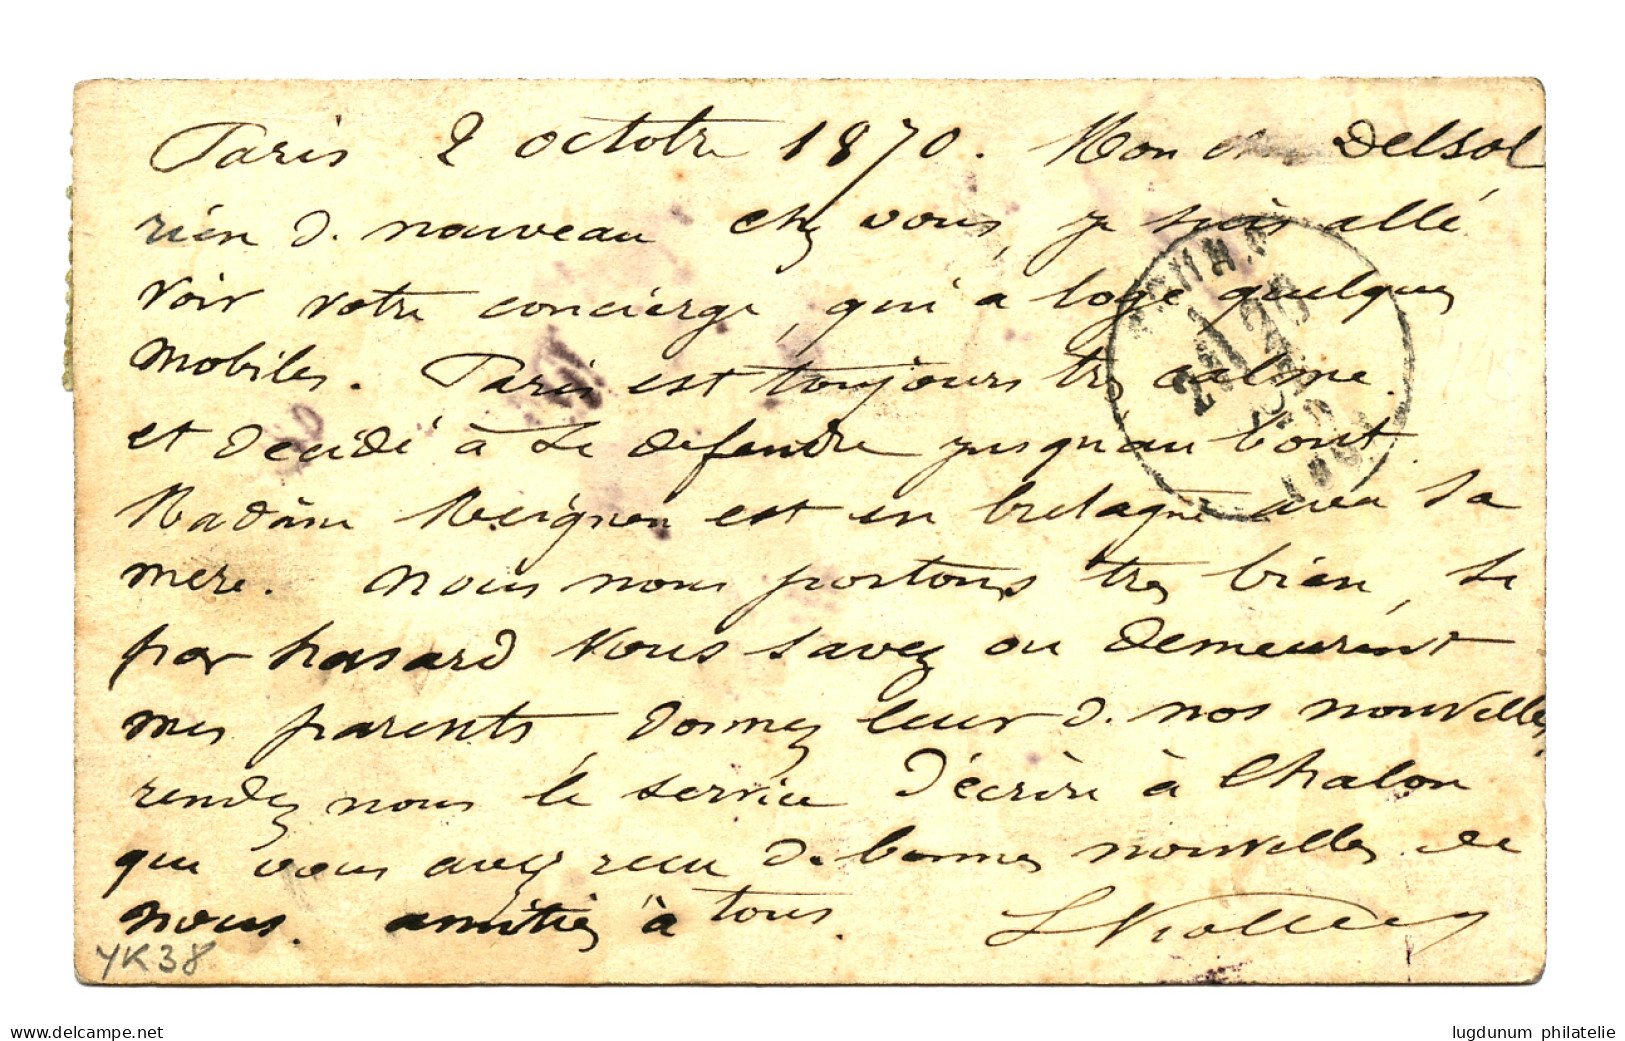 Paris 2 octobre 1870. Mon Delsol
rien d. nouveau chez vous, je suis allé
voir votre concierge, qui a logé quelques
mobiles. Paris est toujours très calme.
et décidé à se defendre jusqu'au bout.
Madame est en bretagne avec sa
mere. Nous nous portons tres bien, si
par hasard vous savez ou demeurent
mes parents, donnez leur d. nos nouvelles,
rendez nous le service d'écrire à Chalon
que vous avez recu de bonnes nouvelles de
nous. amitiés à tous.
YK38
www.delcampe.net
lugdunum philatelie